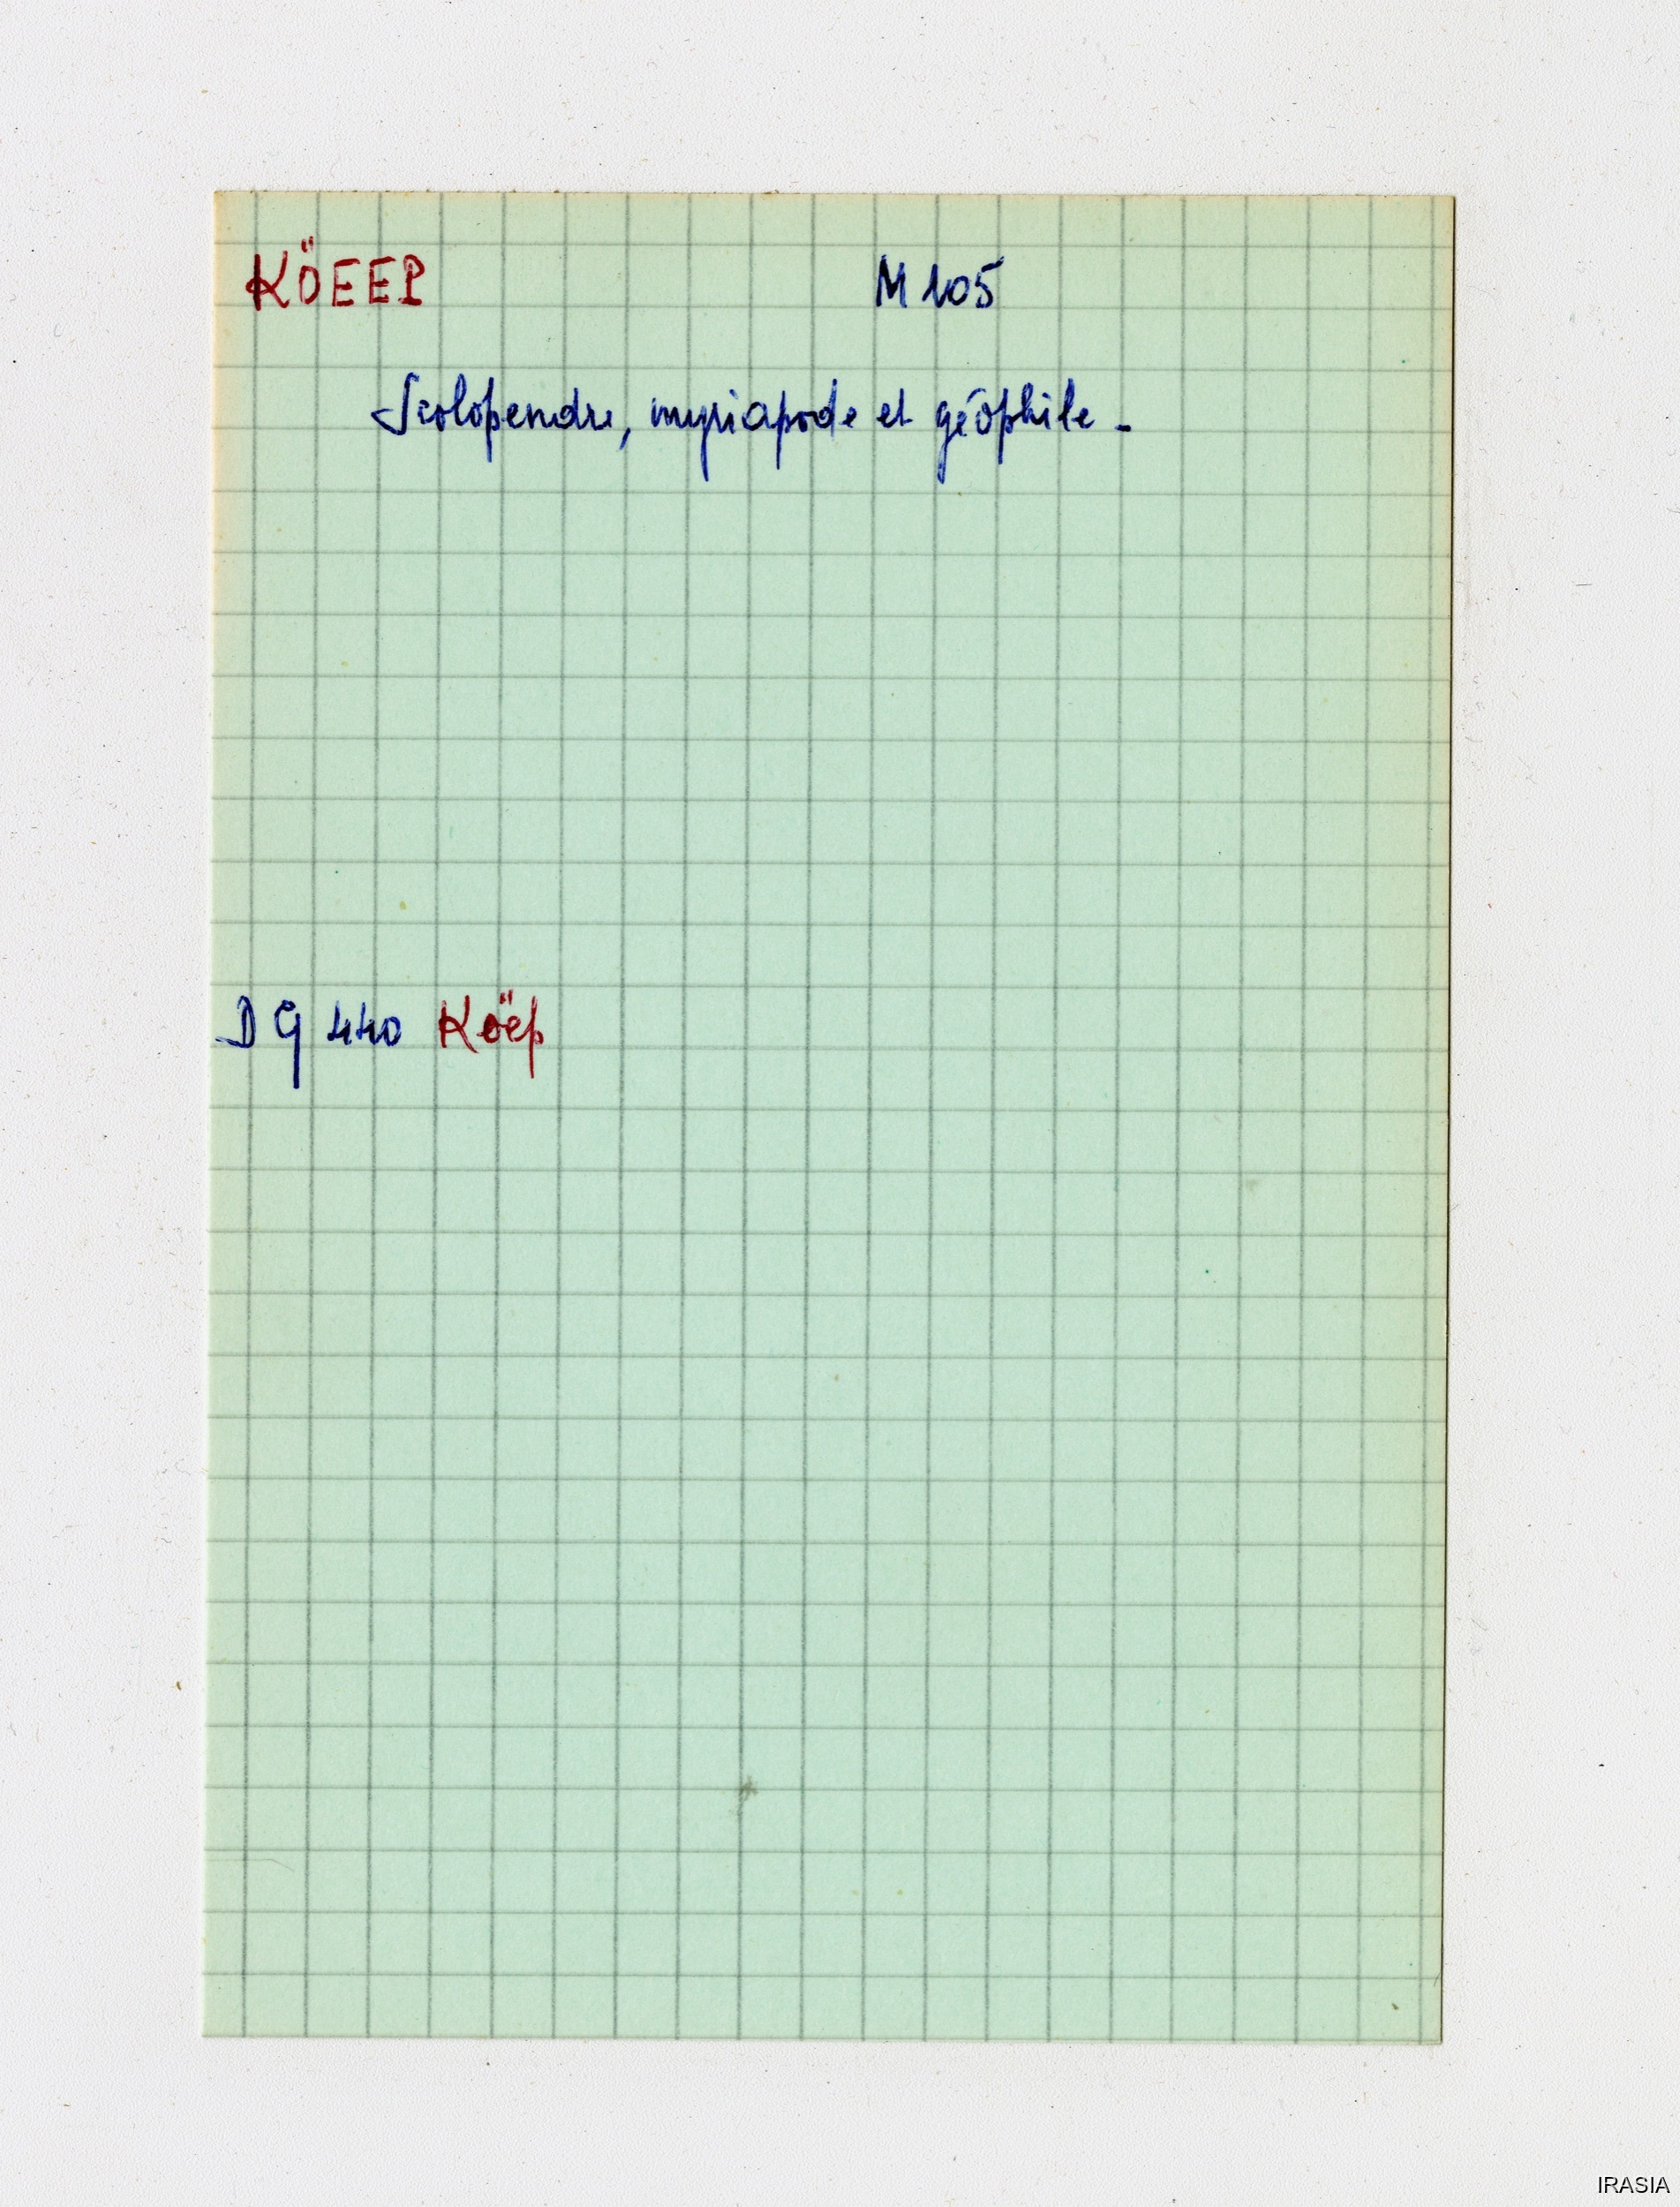 KÖEEP M 105
Scolopendre, myriapode et géophile -
DG 440 Köëp
IRASIA